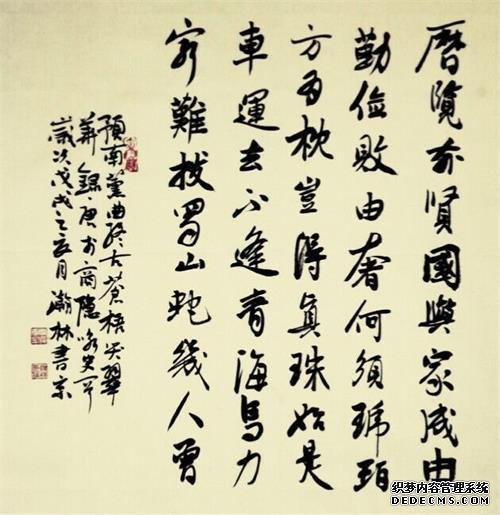 曆覽前賢國與家成由
勤儉敗由奢何須琥珀
方為枕豈得真珠始是
車運去不逢青海馬力
窮難拔蜀山蛇幾人曾
預南薰曲終古蒼梧哭翠
華錄唐李商隱咏史
歲次戊戌之亥月瀚林書
织梦内容管理系统
DEDECMS.COM